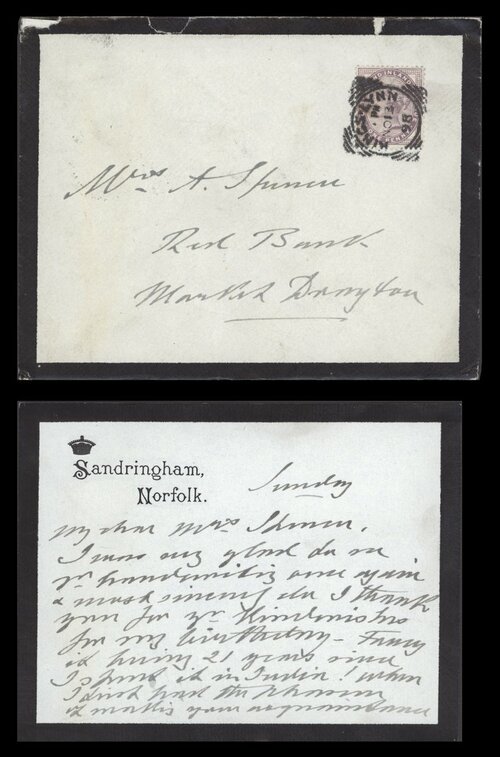 KING'S LYNN
PM
96
Mrs A. Spence
Red Bank
Market Drayton
Sandringham,
Norfolk.
Sunday
My dear Mrs
I was very glad to see
yr handwriting once again
& most sincerely do I thank
you for yr Kind wishes
for my birthday - Fancy
it being 21 years since
I spent it in India! when
I first had the pleasure
of making your acquaintance